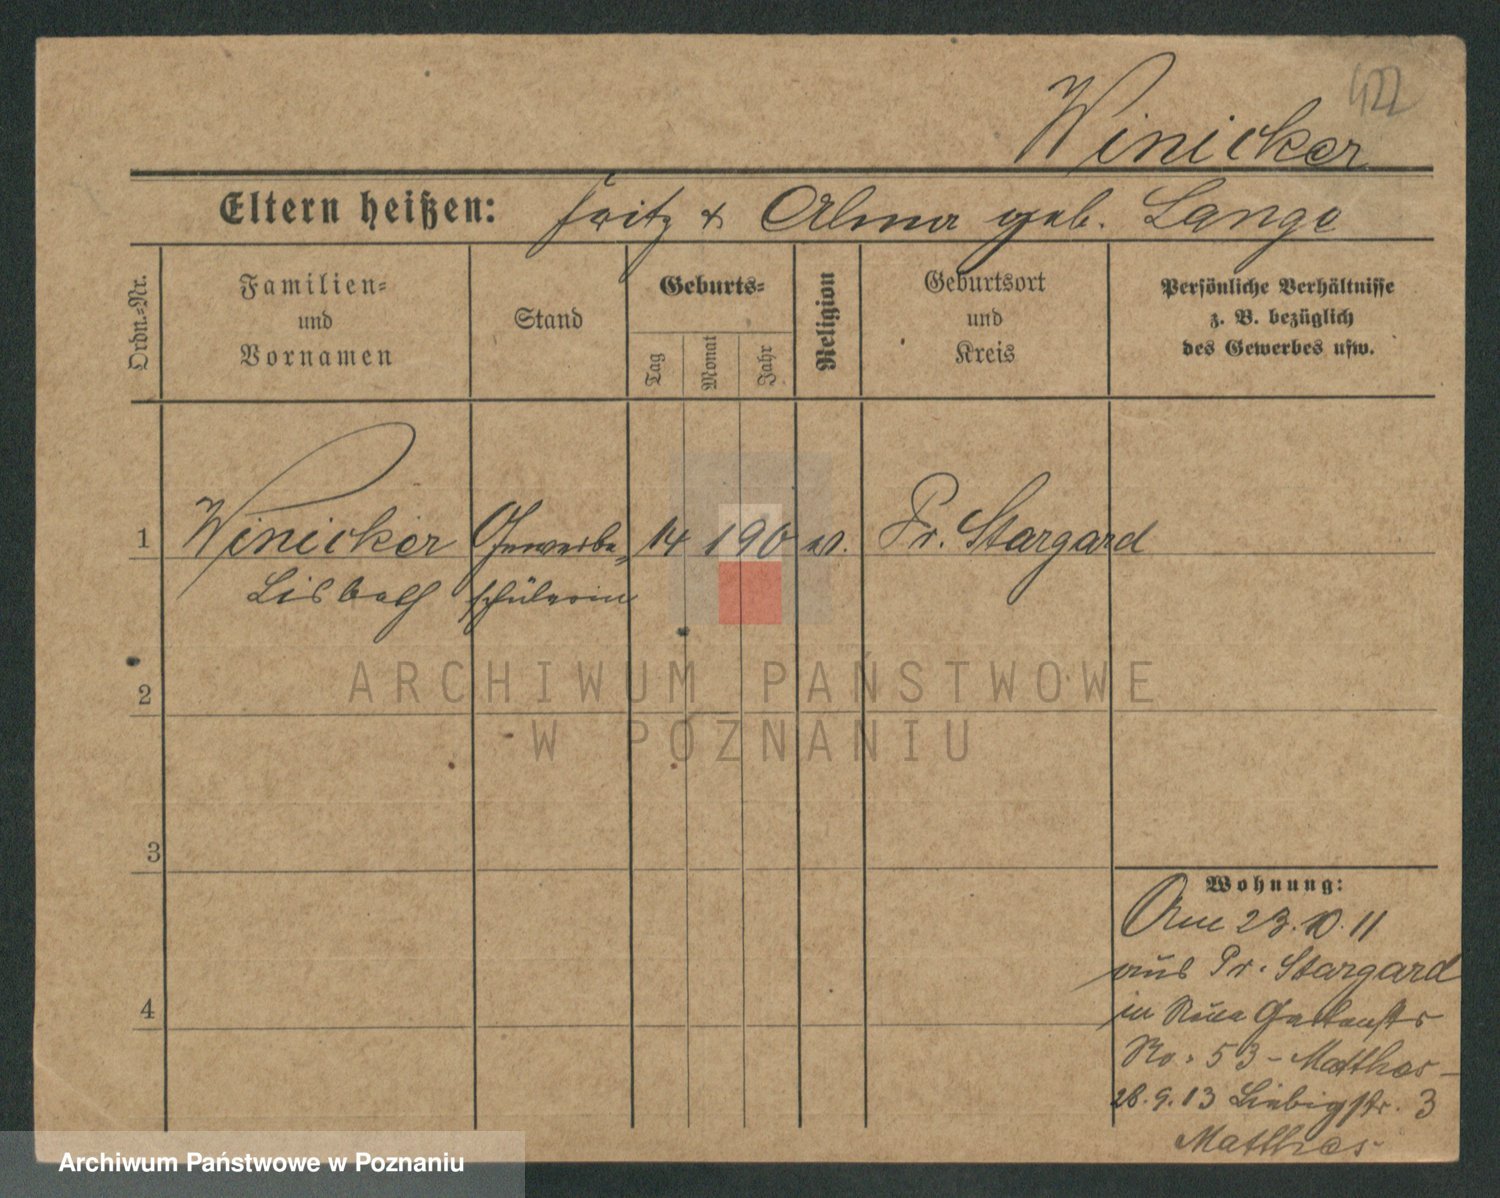 422
Winicker
Eltern heißen: Fritz & Alma geb. Lange
Ordn.=Nr.
Familien=
und
Vornamen
Stand
Geburts=
Tag
Monat
Jahr
Religion
Geburtsort
und
Kreis
Persönliche Verhältnisse
z. B. bezüglich
des Gewerbes usw.
1 Winicker Gewerbe= 14 1 90 ev. Pr. Stargard
Lisbeth schülerin
2
3
4
Wohnung:
Am 23.10.11
aus Pr. Stargard
in Neue Gartenstr
No. 53 - Matthes -
28.9.13 Liebigstr. 3
Matthes -
ARCHIWUM PAŃSTWOWE
W POZNANIU
Archiwum Państwowe w Poznaniu